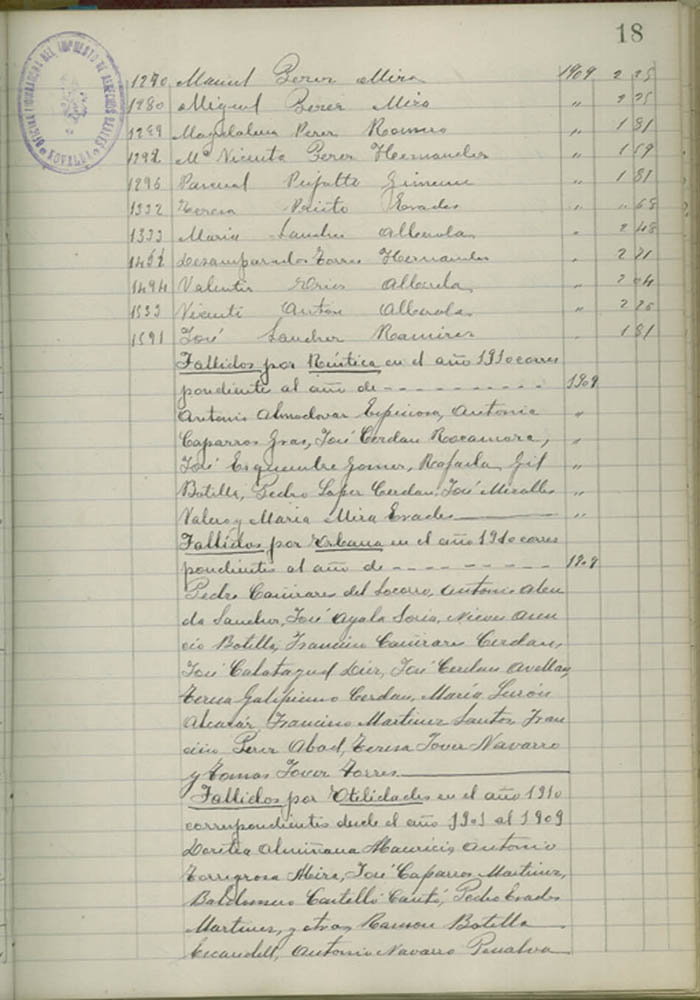 18
OFICINA LIQUIDADORA DEL IMPUESTO DE DERECHOS REALES
1270 Manuel Perez Mira 1909 2 25
1280 Miguel Perez Mira " 2 25
1289 Magdalena Perez Romero " 1 81
1292 Mª Vicenta Perez Hernandez " 1 59
1296 Pascual Gimene " 1 81
1332 Teresa Prieto Evades " " 68
1333 Maria Sanchez Alberola " 2 48
Desamparados Torres Hernandez " 2 21
1494 Valentin Alberola " 2 04
1533 Vicente Anton Alberola " 2 26
1591 José Sanchez Ramirez " 1 81
Fallidos por Rústica en el año 1910 corres
pondiente al año de - - - - - - - - - - 1909
Antonio Almodovar Espinosa, Antonia "
Caparros Gras, José Cerdan Rocamora, "
José Esquembre Gomez, Rafaela Gil "
Botella, Pedro Lopez Cerdan, José Miralles "
Valero y Maria Mira Evades "
Fallidos por Urbana en el año 1910 corres
pondientes al año de - - - - - - - - - 1909
Pedro Cañizares del Socorro, Antonio
Sanchez, José Ayala Soria, Nieves Asen
cio Botella, Francisco Cañizares Cerdan,
José Calatayud Diez, José Cerdan Avellan,
Teresa Galipienso Cerdan, María
Alcazár, Francisco Martinez Santos, Fran
cisco Perez Abad, Teresa Tover Navarro
y Tomas Tover Torres
Fallidos por Utilidades en el año 1910
correspondientes desde el año 1901 al 1909
Dorotea Almiñana Mauricio, Antonio
Torregrosa Mira, José Caparros Martinez,
Baldomero Castelló Cantó, Pedro Evades
Martinez, y otros Ramon Botella
Escandell, Antonio Navarro Penalva